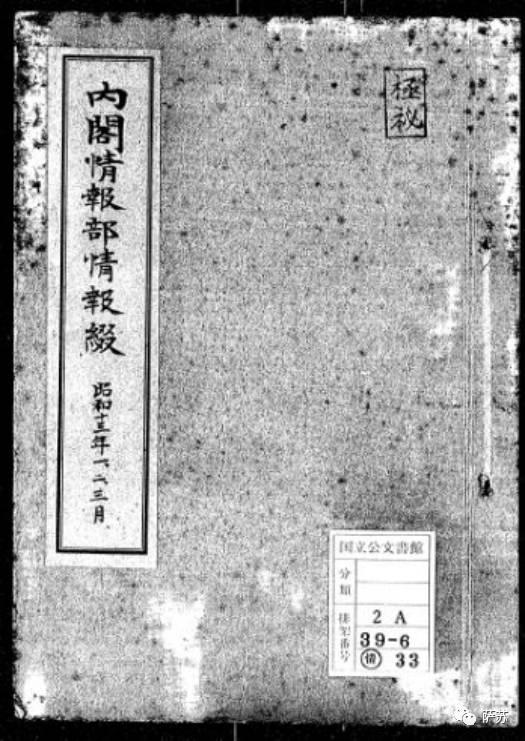 極秘
内閣情報部情報綴
昭和十三年一、二、三月
国立公文書館
分類
排架番号
2 A
39-6
情 33
萨苏